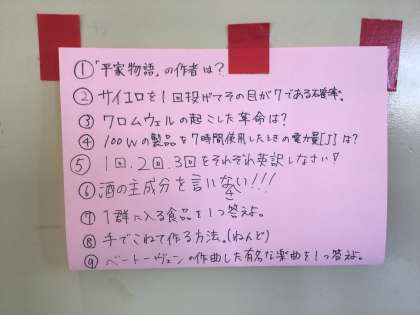 ①「平家物語」の作者は?
②サイコロを1回投げてその目が7である確率。
③クロムウェルの起こした革命は?
④100Wの製品を7時間使用したときの電力量[J]は?
⑤1回、2回、3回をそれぞれ英訳しなさい!
⑥酒の主成分を言いなさい!!!
⑦1群に入る食品を1つ答えよ。
⑧手でこねて作る方法。(ねんど)
⑨ベートーヴェンの作曲した有名な楽曲を1つ答えよ。